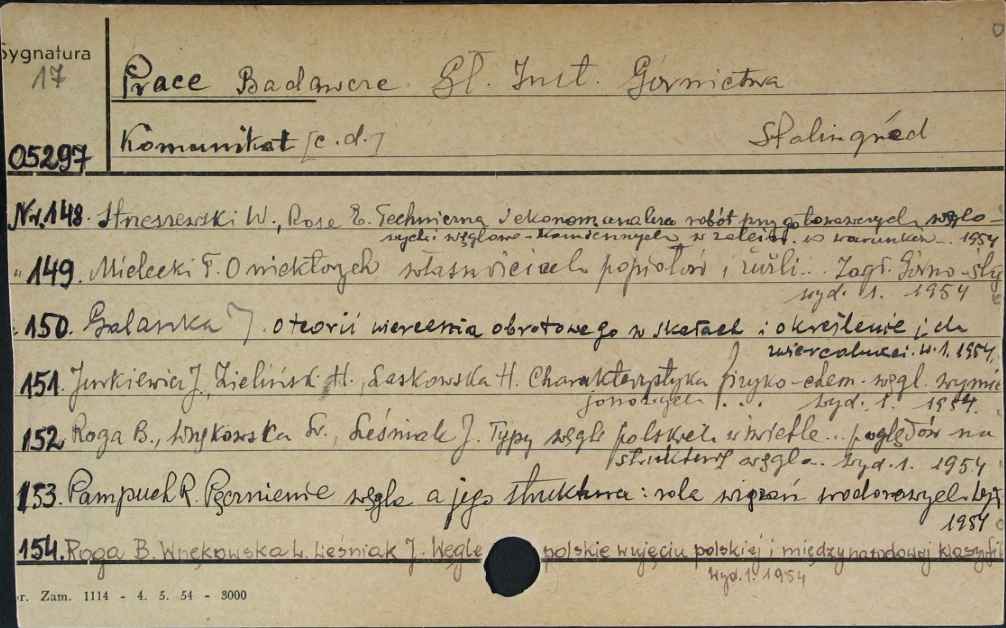 Sygnatura
17
Prace Badawcze. Gł. Inst. Górnictwa
Komunikat [c.d.] Stalinogród
05297
Nr.148. Streszewski W., Rose E. Techniczna i ekonom. analiza robót przygotowawczych węglo-
wych i węglowo-kamiennych w zależn. warunków. 1954
" 149. Mielecki T. O niektórych własnościach popiołów i żużli... Zagł. Górno-Ślą
wyd. 1. 1954
" 150. Galanka J. O teorii wiercenia obrotowego w skałach i określenie ich
zwiercalności. w. 1. 1954.
151. Jurkiewicz J., Zieliński H., Laskowska H. Charakterystyka fizyko-chem. węgl. wymie
jonowych ... wyd. 1. 1954.
152 Roga B., Wnękowska Ł., Leśniak J. Typy węgli polskich w świetle... poglądów na
strukturę węgla. wyd. 1. 1954
153. Pampuch R. Pęcznienie węgla a jego struktura: rola wiązań wodorowych.
1954.
154. Roga B. Wnękowska Ł. Leśniak J. Węgle polskie w ujęciu polskiej i międzynarodowej klasyfi
wyd. 1. 1954
r. Zam. 1114 - 4. 5. 54 - 3000